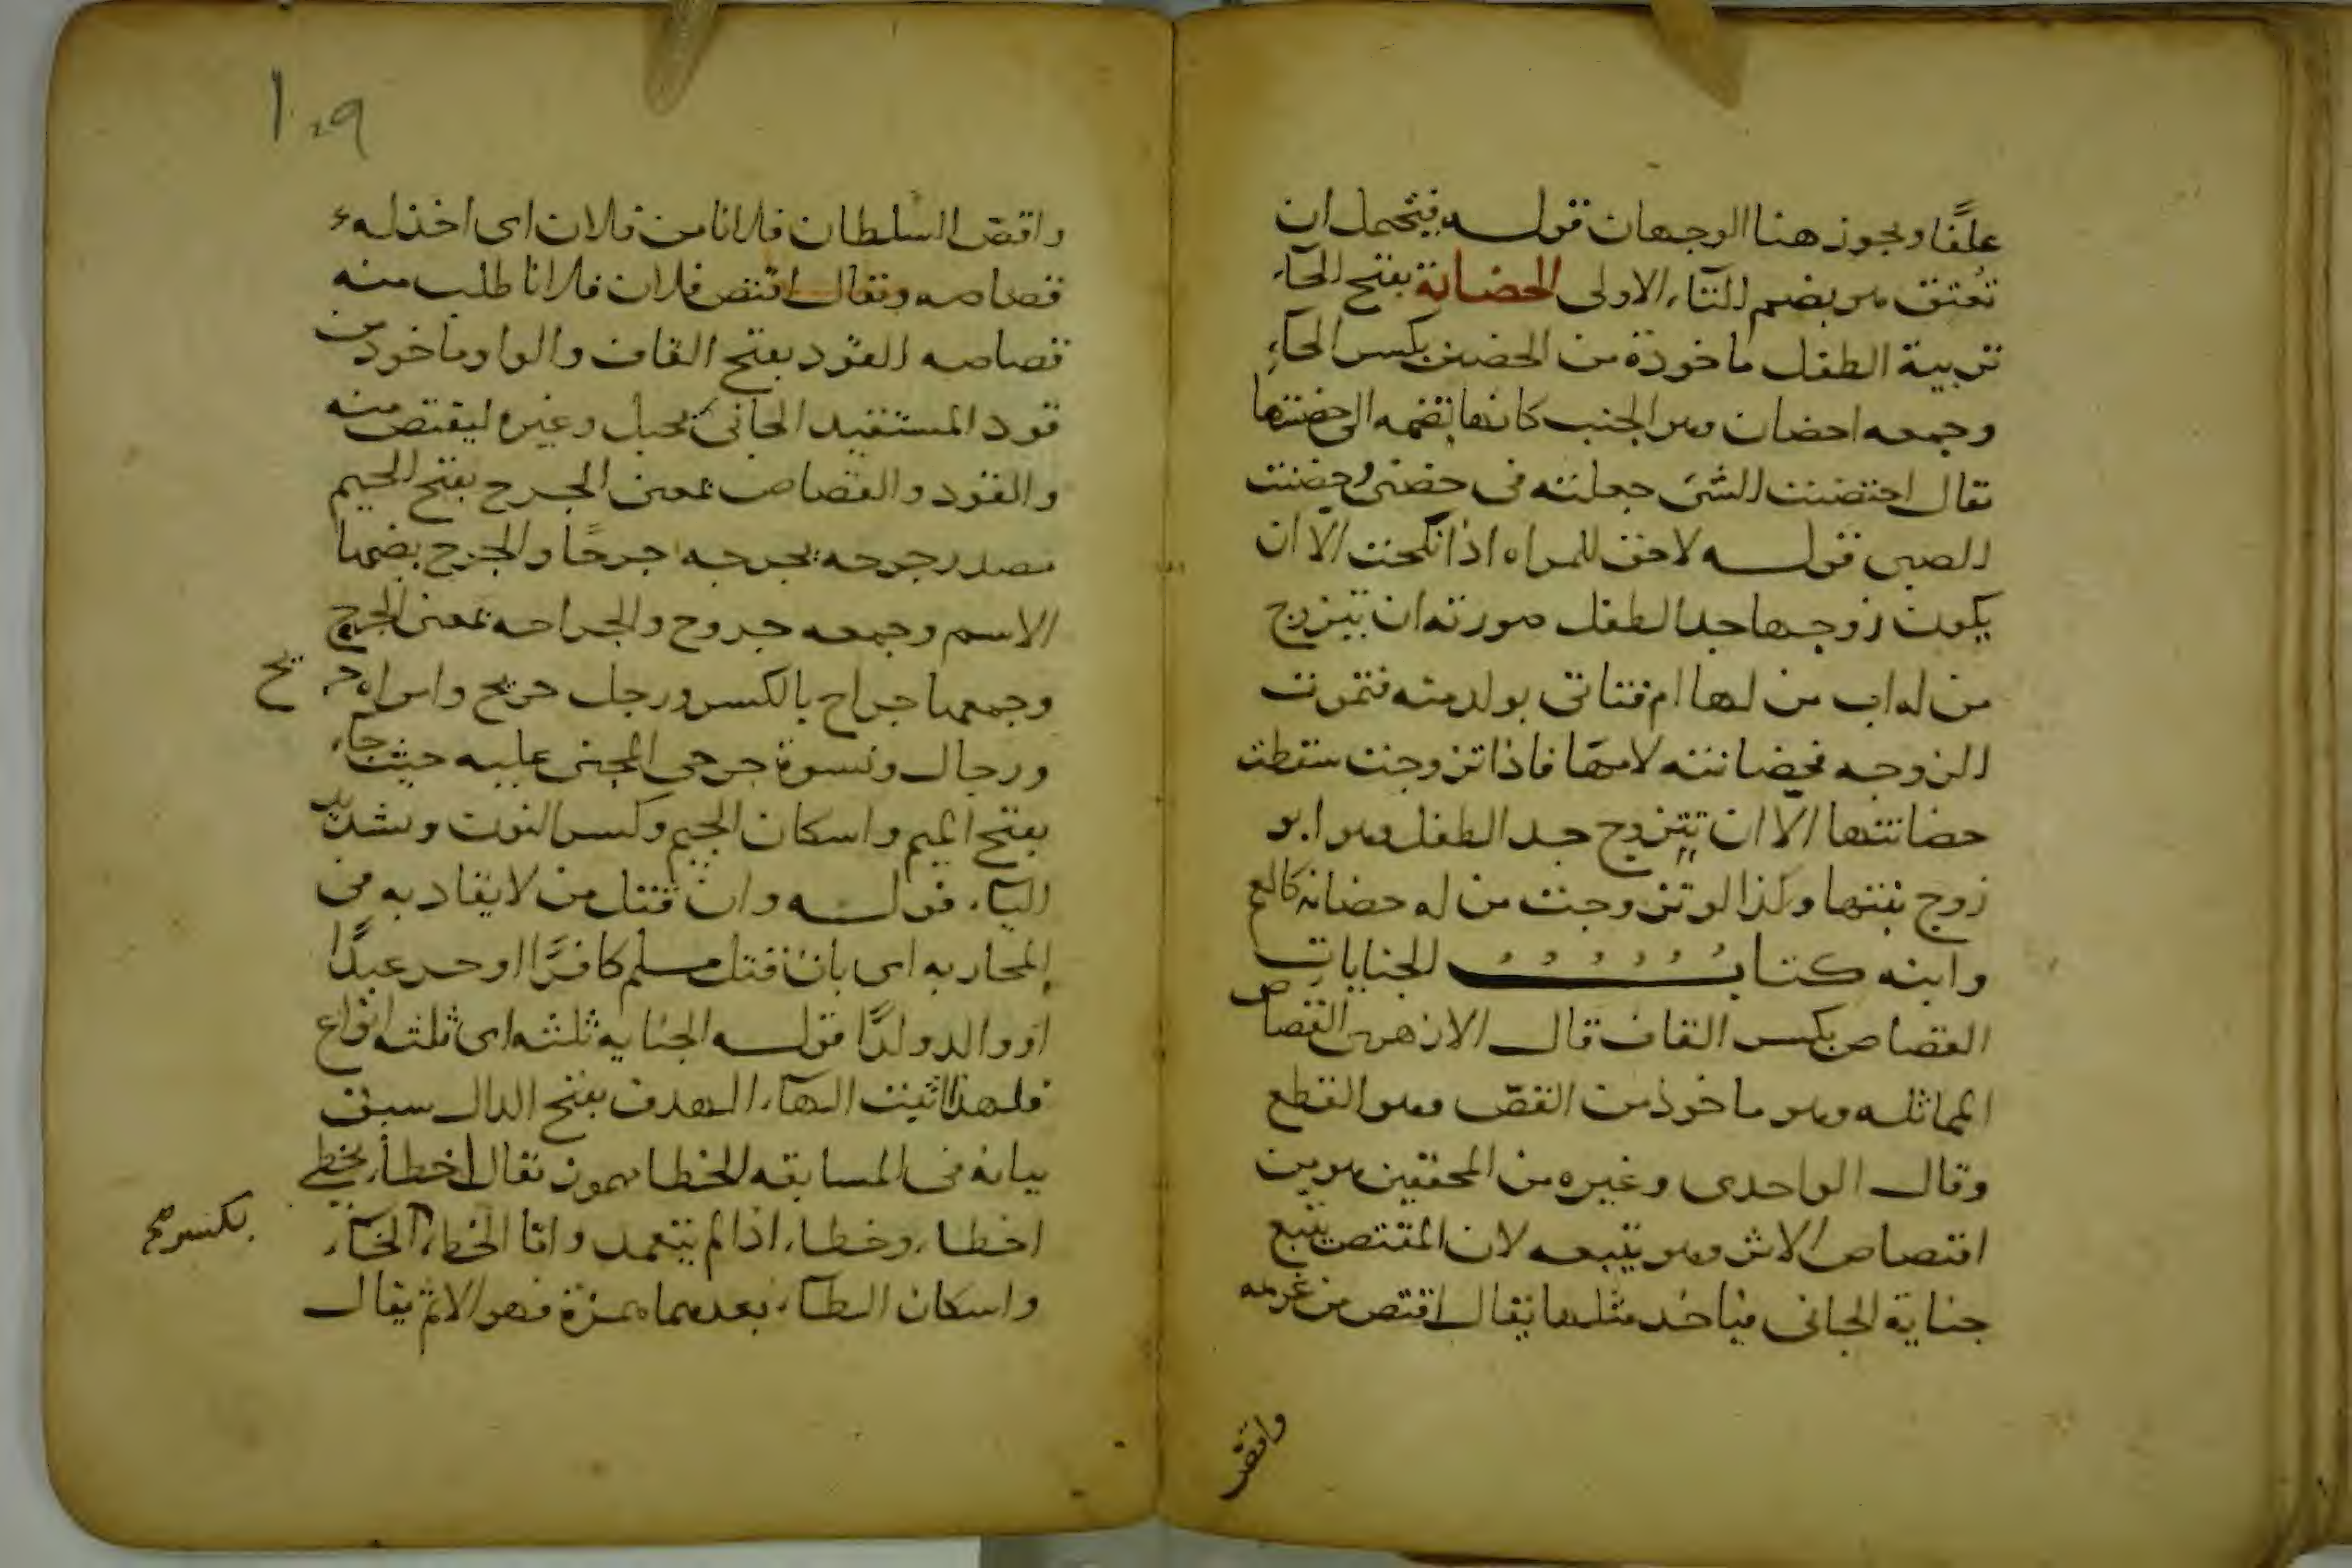 علفًا ويجوز هنا الوجهان قوله فيحمل ان
تعتق هو بضم التاء الاولى الحضانة بفتح الحاء
تربية الطفل ماخوذة من الحضن بكسر الحاء
وجمعه احضان وهو الجنب كانها تضمه الى حضنها
يقال احتضنت الشئ جعلته فى حضنى وحضنت
الصبى قوله لا حق للمراه اذا نكحت الا ان
يكون زوجها جد الطفل صورته ان يتزوج
من له اب من لها ام فتاتى بولد منه فتموت
الزوجه فحضانته لامها فاذا تزوجت سقطت
حضانتها الا ان تتزوج جد الطفل وهو ابو
زوج بنتها وكذا لو تزوجت من له حضانه كالعم
وابنه كتاب الجنايات
القصاص بكسر القاف قال الازهرى القصاص
المماثله وهو ماخوذ من القصّ وهو القطع
وقال الواحدى وغيره من المحققين هو من
اقتصاص الاثر وهو تتبعه لان المقتص يتبع
جناية الجانى فياخذ مثلها يقال اقتص من غريمه
واقصّ
١٠٩
واقصّ السلطان فلانا من فلان اى اخذ له
قصاصه ويقال اقتص فلان فلانا طلب منه
قصاصه القود بفتح القاف والواو ماخوذ من
قود المستقيد الجانى بحبل وغيره ليقتص منه
والقود والقصاص بمعنى الجرح بفتح الجيم
مصدر جرحه يجرحه جرحًا والجرح بضمها
الاسم وجمعه جروح والجراحه بمعنى الجرح
وجمعها جراح بالكسر ورجل جريح وامراه جريح
ورجال ونسوة جرحى المجنى عليه حيث جاء
بفتح الميم واسكان الجيم وكسر النون وتشديد
الياء قوله وان قتل من لا يقاد به فى
المحاربه اى بان قتل مسلم كافرًا او حر عبدًا
او والد ولدًا قوله الجنايه ثلثه اى ثلثه انواع
فلهذا اثبت الهاء الهدف بفتح الدال سبق
بيانه فى المسابقه الخطا مهموز يقال اخطأ يخطئ
اخطاء وخطاء اذا لم يتعمد واما الخطء الخاء
بكسر صح
واسكان الطاء بعدهما همزة فهو الاثم يقال